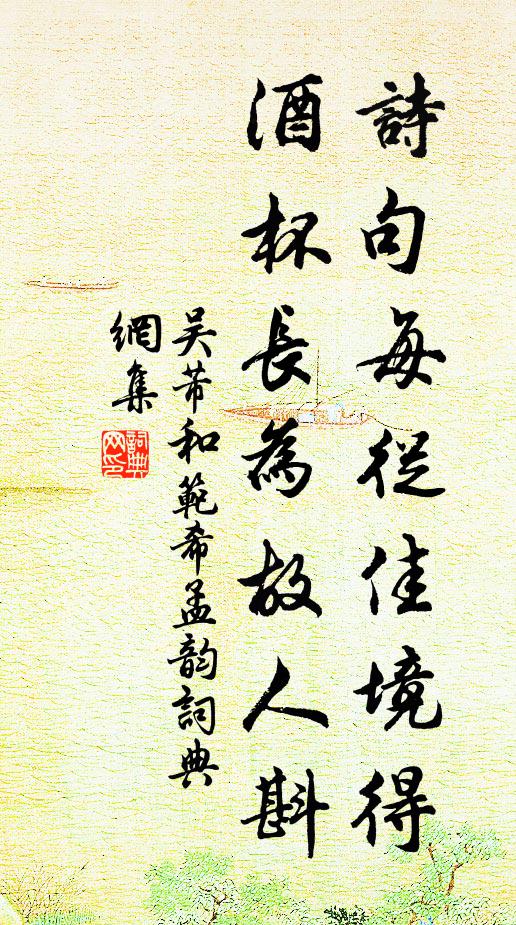 詩句每從佳境得
酒杯長為故人斟
吳芾和範希孟韵詞典
網集
詞典
网印